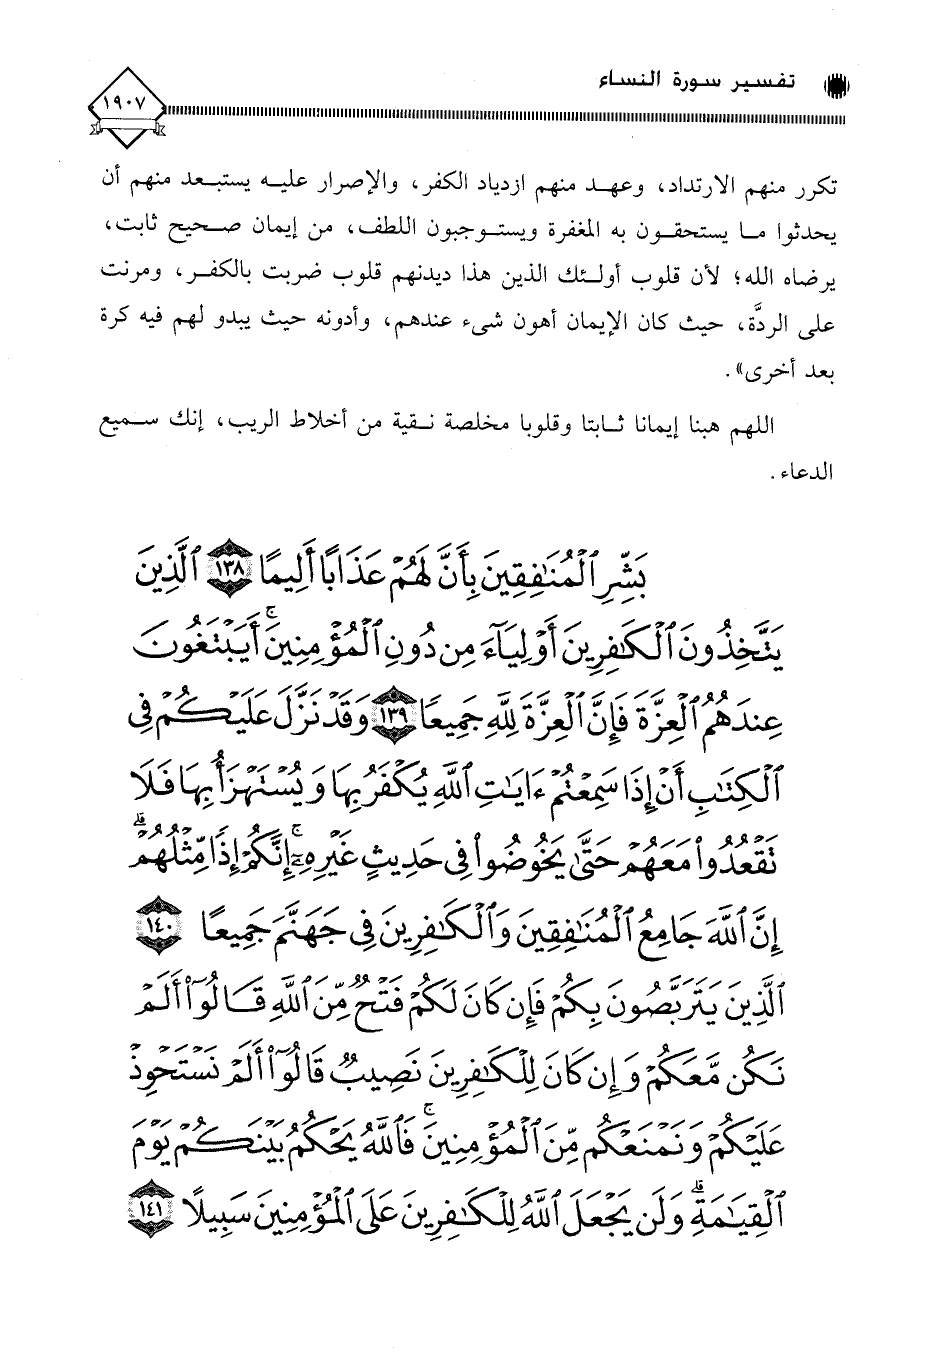 تفسير سورة النساء
١٩٠٧
تكرر منهم الارتداد، وعهد منهم ازدياد الكفر، والإصرار عليه يستبعد منهم أن
يحدثوا ما يستحقون به المغفرة ويستوجبون اللطف، من إيمان صحيح ثابت،
يرضاه الله؛ لأن قلوب أولئك الذين هذا ديدنهم قلوب ضربت بالكفر، ومرنت
على الردَّة، حيث كان الإيمان أهون شىء عندهم، وأدونه حيث يبدو لهم فيه كرة
بعد أخرى».
اللهم هبنا إيمانا ثابتا وقلوبا مخلصة نقية من أخلاط الريب، إنك سميع
الدعاء.
بَشِّرِ ٱلْمُنَٰفِقِينَ بِأَنَّ لَهُمْ عَذَابًا أَلِيمًا ١٣٨ ٱلَّذِينَ
يَتَّخِذُونَ ٱلْكَٰفِرِينَ أَوْلِيَآءَ مِن دُونِ ٱلْمُؤْمِنِينَ ۚ أَيَبْتَغُونَ
عِندَهُمُ ٱلْعِزَّةَ فَإِنَّ ٱلْعِزَّةَ لِلَّهِ جَمِيعًا ١٣٩ وَقَدْ نَزَّلَ عَلَيْكُمْ فِى
ٱلْكِتَٰبِ أَنْ إِذَا سَمِعْتُمْ ءَايَٰتِ ٱللَّهِ يُكْفَرُ بِهَا وَيُسْتَهْزَأُ بِهَا فَلَا
تَقْعُدُوا۟ مَعَهُمْ حَتَّىٰ يَخُوضُوا۟ فِى حَدِيثٍ غَيْرِهِۦٓ ۚ إِنَّكُمْ إِذًا مِّثْلُهُمْ ۗ
إِنَّ ٱللَّهَ جَامِعُ ٱلْمُنَٰفِقِينَ وَٱلْكَٰفِرِينَ فِى جَهَنَّمَ جَمِيعًا ١٤٠
ٱلَّذِينَ يَتَرَبَّصُونَ بِكُمْ فَإِن كَانَ لَكُمْ فَتْحٌ مِّنَ ٱللَّهِ قَالُوٓا۟ أَلَمْ
نَكُن مَّعَكُمْ وَإِن كَانَ لِلْكَٰفِرِينَ نَصِيبٌ قَالُوٓا۟ أَلَمْ نَسْتَحْوِذْ
عَلَيْكُمْ وَنَمْنَعْكُم مِّنَ ٱلْمُؤْمِنِينَ ۚ فَٱللَّهُ يَحْكُمُ بَيْنَكُمْ يَوْمَ
ٱلْقِيَٰمَةِ ۗ وَلَن يَجْعَلَ ٱللَّهُ لِلْكَٰفِرِينَ عَلَى ٱلْمُؤْمِنِينَ سَبِيلًا ١٤١